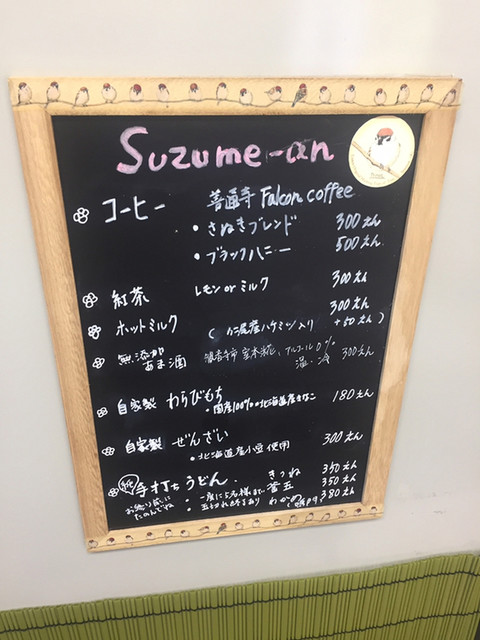 Suzume-an
コーヒー 善通寺 Falcon coffee
・さぬきブレンド 300えん
・ブラックハニー 500えん
紅茶 レモン or ミルク 300えん
ホットミルク 300えん
(仁尾産ハチミツ入り +50えん)
無添加 あま酒 観音寺市 室本糀、アルコール0% 温・冷 300えん
自家製 わらびもち 180えん
・国産100%の北海道産きなこ
自家製 ぜんざい 300えん
・北海道産小豆使用
手打ちうどん きつね 350えん
・一度に5名様まで 釜玉 350えん
お繰り返しに わかめ 380えん